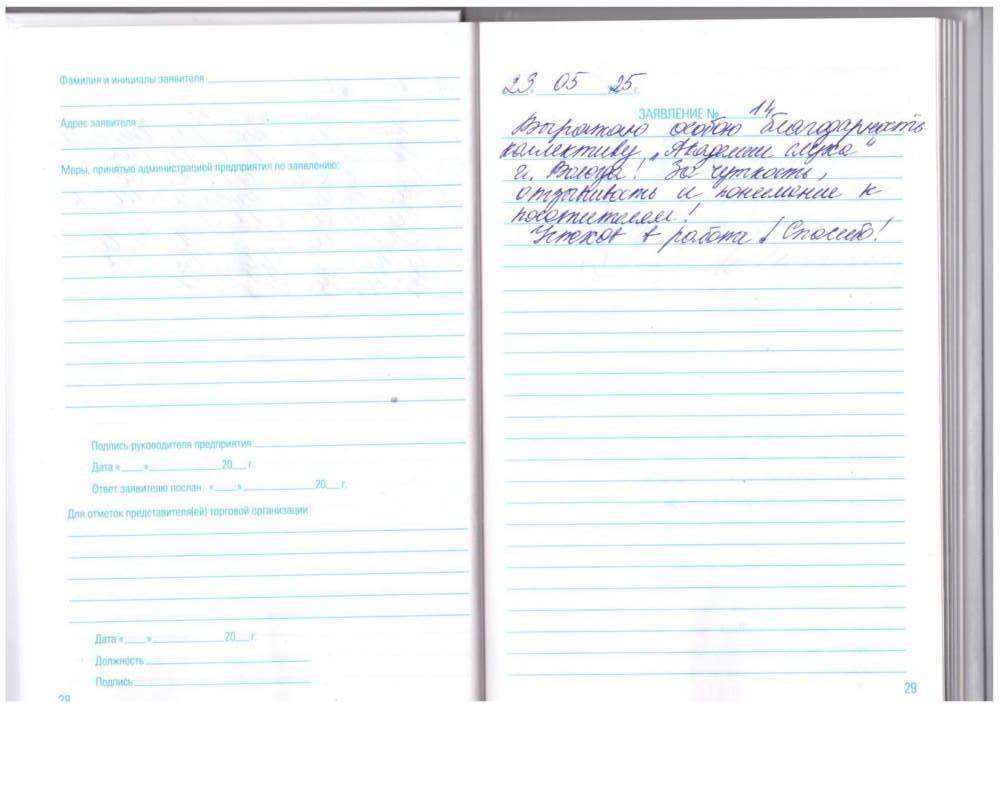 Фамилия и инициалы заявителя
Адрес заявителя
Меры, принятые администрацией предприятия по заявлению:
Подпись руководителя предприятия
Дата «____»____________20___г.
Ответ заявителю послан «____»____________20___г.
Для отметок представителя(ей) торговой организации
Дата «____»____________20___г.
Должность
Подпись
28
23. 05 25г.
ЗАЯВЛЕНИЕ № 14
Выражаю особою благодарность
коллективу „Академии слуха"
г. Вологда! За чуткость,
отзывчивать и понимание к
посетителям!
Успехов в работе! Спасибо!
29